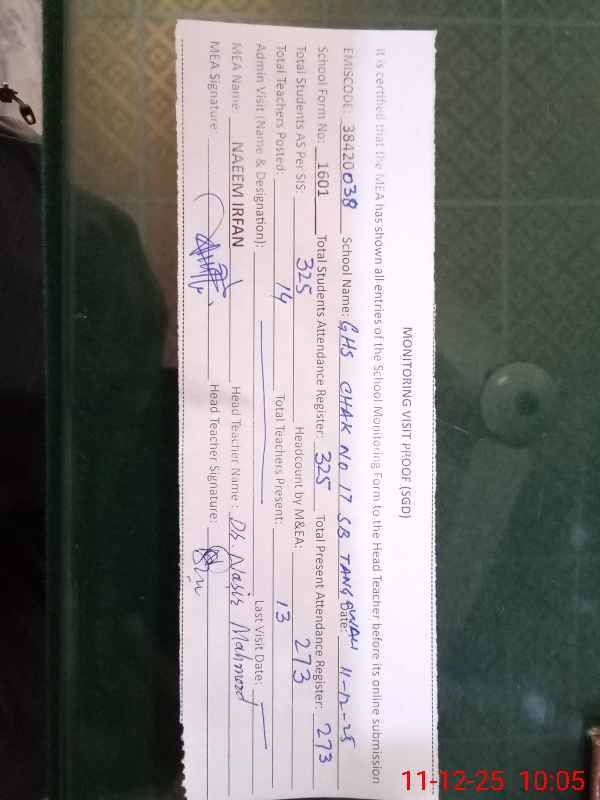 MONITORING VISIT PROOF (SGD)
It is certified that the MEA has shown all entries of the School Monitoring Form to the Head Teacher before its online submission
EMISCODE: 38420038 School Name: GHS CHAK NO 17 SB TANGOWALI Date: 11-12-25
School Form No: 1601 Total Students Attendance Register: 325 Total Present Attendance Register: 273
Total Students AS Per SIS: 325 Headcount by M&EA: 273
Total Teachers Posted: 14 Total Teachers Present: 13
Admin Visit (Name & Designation): Last Visit Date:
MEA Name: NAEEM IRFAN Head Teacher Name : Dr Nasir Mahmood
MEA Signature: Head Teacher Signature:
11-12-25 10:05